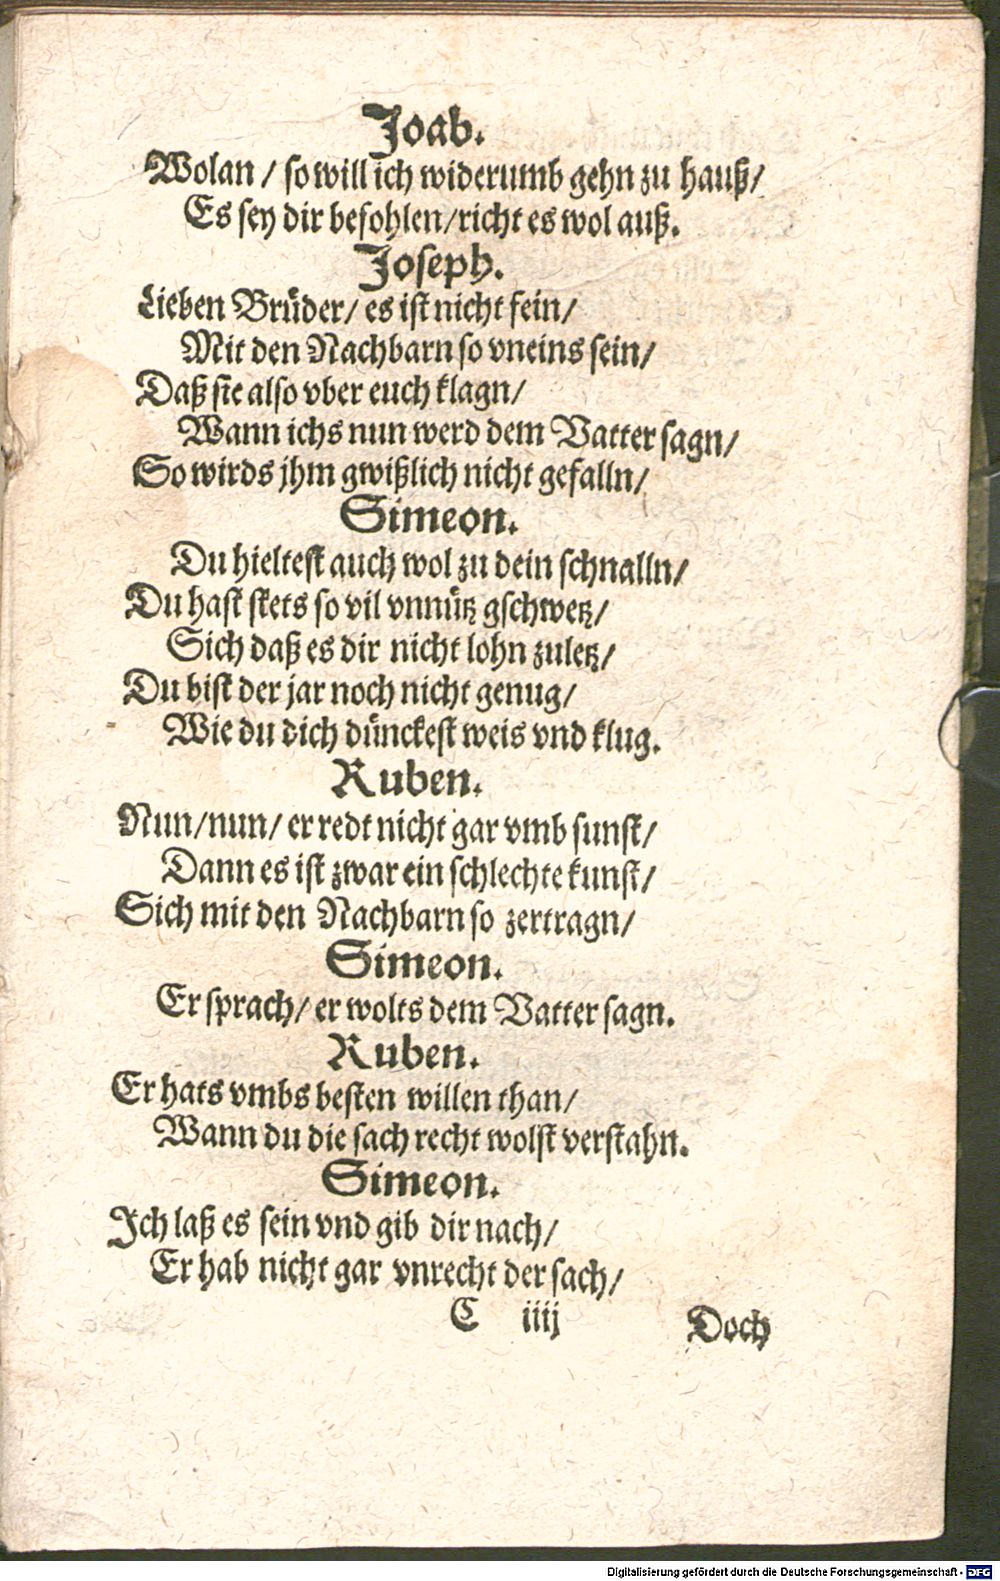 Joab.
Wolan / so will ich widerumb gehn zu hauß /
Es sey dir befohlen / richt es wol auß.
Joseph.
Lieben Brüder / es ist nicht fein /
Mit den Nachbarn so vneins sein /
Daß sie also vber euch klagn /
Wann ichs nun werd dem Vatter sagn /
So wirds jhm gwißlich nicht gefalln /
Simeon.
Du hieltest auch wol zu dein schnalln /
Du hast stets so vil vnnütz gschwetz /
Sich daß es dir nicht lohn zuletz /
Du bist der jar noch nicht genug /
Wie du dich dünckest weis vnd klug.
Ruben.
Nun / nun / er redt nicht gar vmb sunst /
Dann es ist zwar ein schlechte kunst /
Sich mit den Nachbarn so zertragn /
Simeon.
Er sprach / er wolts dem Vatter sagn.
Ruben.
Er hats vmbs besten willen than /
Wann du die sach recht wolst verstahn.
Simeon.
Ich laß es sein vnd gib dir nach /
Er hab nicht gar vnrecht der sach /
C iiij Doch
Digitalisierung gefördert durch die Deutsche Forschungsgemeinschaft - DFG